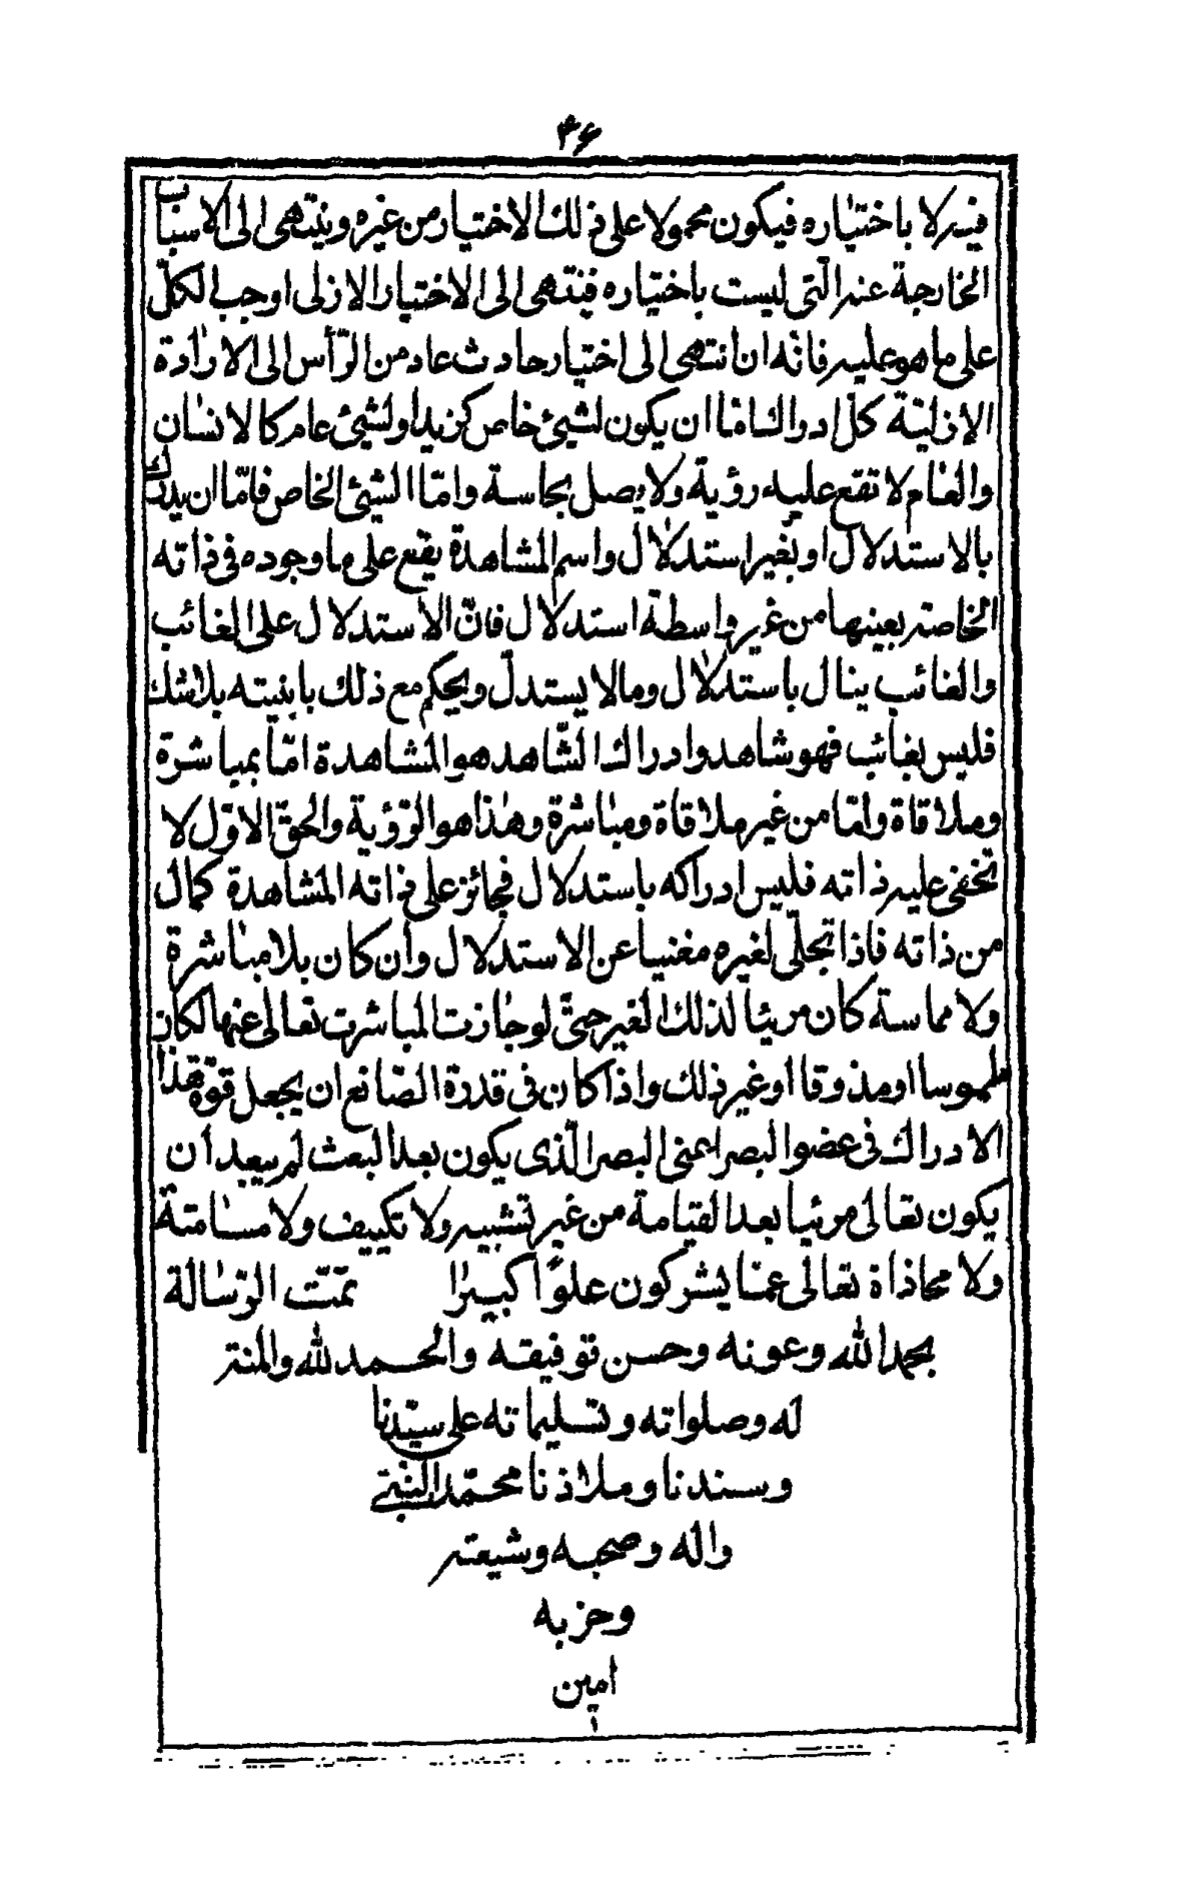 ۳۶
فيه لا باختياره فيكون محمولا على ذلك الاختيار من غيره وينتهى الى الاسباب
الخارجة عنه الّتى ليست باختياره فينتهى الى الاختيار الازلى اوجب الكلّ
على ما هو عليه فانّه ان انتهى الى اختيار حادث عاد من الرّأس الى الارادة
الازليّة كلّ ادراك امّا ان يكون لشيئ خاص كزيد اولشيئ عام كالانسان
والعام لا تقع عليه رؤية ولا يصل بحاسة وامّا الشيئ الخاص فامّا ان يدرك
بالاستدلال او بغير استدلال واسم المشاهدة يقع على ما وجوده فى ذاته
الخاصة بعينها من غير واسطة استدلال فانّ الاستدلال على الغائب
والغائب ينال باستدلال وما لا يستدلّ ويحكم مع ذلك بانيته بلا شك
فليس بغائب فهو شاهد وادراك الشّاهد هو المشاهدة امّا بمباشرة
وملاقاة وامّا من غير ملاقاة ومباشرة وهذا هو الرّؤية والحقّ الاوّل لا
تخفى عليه ذاته فليس ادراكه باستدلال فجائز على ذاته المشاهدة كمال
من ذاته فاذا تجلّى لغيره مغنيا عن الاستدلال وان كان بلا مباشرة
ولا مماسة كان مرئيا لذلك الغير حتّى لو جازت المباشرت تعالى عنها لكان
ملموسا او مذوقا او غير ذلك واذا كان فى قدرة الصّانع ان يجعل قوّة هذا
الادراك فى عضو البصر اعنى البصر الّذى يكون بعد البعث لم يبعد ان
يكون تعالى مرئيا بعد القيامة من غير تشبيه ولا تكييف ولا مسامتة
ولا محاذاة تعالى عمّا يشركون علوّا كبيرا تمّت الرّسالة
بحمد الله وعونه وحسن توفيقه والحمد لله والمنة
له وصلواته وتسليماته على سيّدنا
وسندنا وملاذنا محمّد النبّى
واله وصحبه وشيعته
وحزبه
امين